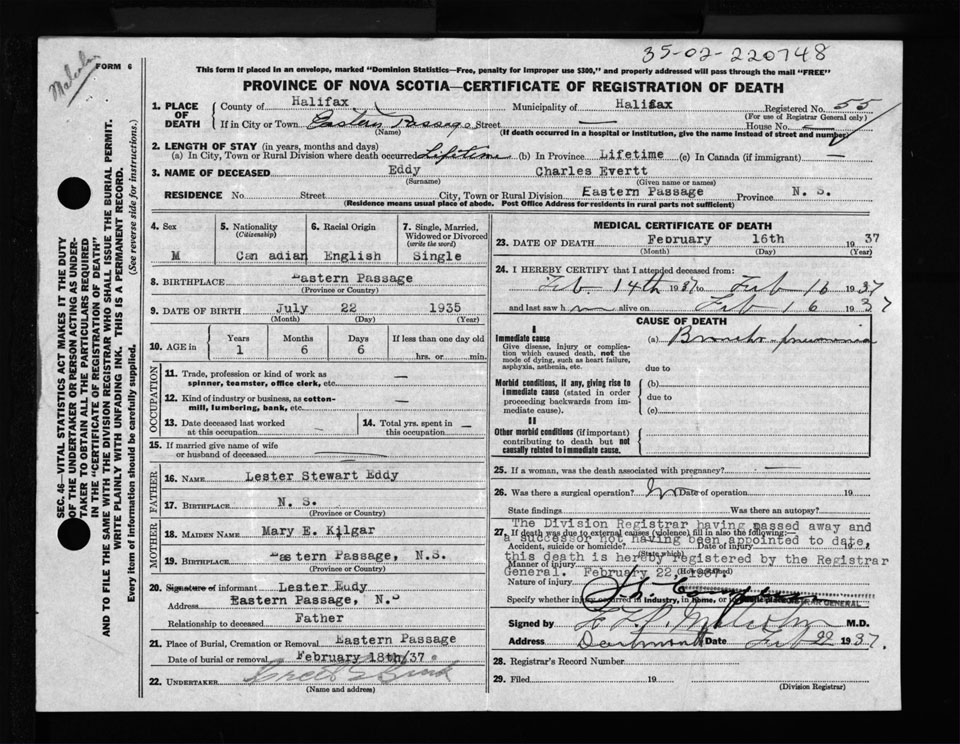 35-02-220748
Malcolm
FORM 6
This form if placed in an envelope, marked "Dominion Statistics—Free, penalty for improper use $300," and properly addressed will pass through the mail "FREE"
PROVINCE OF NOVA SCOTIA—CERTIFICATE OF REGISTRATION OF DEATH
SEC. 46—VITAL STATISTICS ACT MAKES IT THE DUTY
OF THE UNDERTAKER OR PERSON ACTING AS UNDER-
TAKER TO OBTAIN ALL THE PARTICULARS REQUIRED
IN THE "CERTIFICATE OF REGISTRATION OF DEATH"
AND TO FILE THE SAME WITH THE DIVISION REGISTRAR WHO SHALL ISSUE THE BURIAL PERMIT.
WRITE PLAINLY WITH UNFADING INK. THIS IS A PERMANENT RECORD.
Every item of information should be carefully supplied. (See reverse side for instructions.)
1. PLACE OF DEATH County of Halifax Municipality of Halifax Registered No. 55
(For use of Registrar General only)
If in City or Town Eastern Passage Street — House No. —
(Name) (If death occurred in a hospital or institution, give the name instead of street and number)
2. LENGTH OF STAY (in years, months and days)
(a) In City, Town or Rural Division where death occurred Lifetime (b) In Province Lifetime (c) In Canada (if immigrant) —
3. NAME OF DECEASED Eddy Charles Evertt
(Surname) (Given name or names)
RESIDENCE No. Street City, Town or Rural Division Eastern Passage Province N. S.
(Residence means usual place of abode. Post Office Address for residents in rural parts not sufficient)
4. Sex 5. Nationality (Citizenship) 6. Racial Origin 7. Single, Married, Widowed or Divorced (write the word)
M Can adian English Single
8. BIRTHPLACE Eastern Passage
(Province or Country)
9. DATE OF BIRTH July 22 1935
(Month) (Day) (Year)
10. AGE in Years Months Days If less than one day old
1 6 6 hrs. or min.
OCCUPATION
11. Trade, profession or kind of work as
spinner, teamster, office clerk, etc. —
12. Kind of industry or business, as cotton-
mill, lumbering, bank, etc. —
13. Date deceased last worked at this occupation — 14. Total yrs. spent in this occupation —
15. If married give name of wife
or husband of deceased —
FATHER
16. NAME Lester Stewart Eddy
17. BIRTHPLACE N. S.
(Province or Country)
MOTHER
18. MAIDEN NAME Mary E. Kilgar
19. BIRTHPLACE Eastern Passage, N.S.
(Province or Country)
20. Signature of informant Lester Eddy
Address Eastern Passage, N.S
Relationship to deceased Father
21. Place of Burial, Cremation or Removal Eastern Passage
Date of burial or removal February 18th/37
22. UNDERTAKER
(Name and address)
MEDICAL CERTIFICATE OF DEATH
23. DATE OF DEATH February 16th 1937
(Month) (Day) (Year)
24. I HEREBY CERTIFY that I attended deceased from:
Feb. 14th 1937 to Feb 16 1937
and last saw h m alive on Feb 6 1937
CAUSE OF DEATH
I
Immediate cause (a) Broncho-pneumonia
Give disease, injury or complica-
tion which caused death, not the
mode of dying, such as heart failure,
asphyxia, asthenia, etc. due to
Morbid conditions, if any, giving rise to (b)
immediate cause (stated in order due to
proceeding backwards from im- (c)
mediate cause).
II
Other morbid conditions (if important)
contributing to death but not
causally related to immediate cause.
25. If a woman, was the death associated with pregnancy? —
26. Was there a surgical operation? No Date of operation 19
State findings Was there an autopsy?
27. If death was due to external causes (violence) fill in also the following:—
The Division Registrar having passed away and
Accident, suicide or homicide? Date of injury 19
a successor not having been appointed to date,
(State which)
this death is hereby registered by the Registrar
Manner of injury
General. February 22, 1937.
Nature of injury
Specify whether injury occurred in industry, in home, or
REGISTRAR GENERAL
Signed by Malcolm M.D.
Address Dartmouth Feb 22 1937.
28. Registrar's Record Number
29. Filed 19
(Division Registrar)